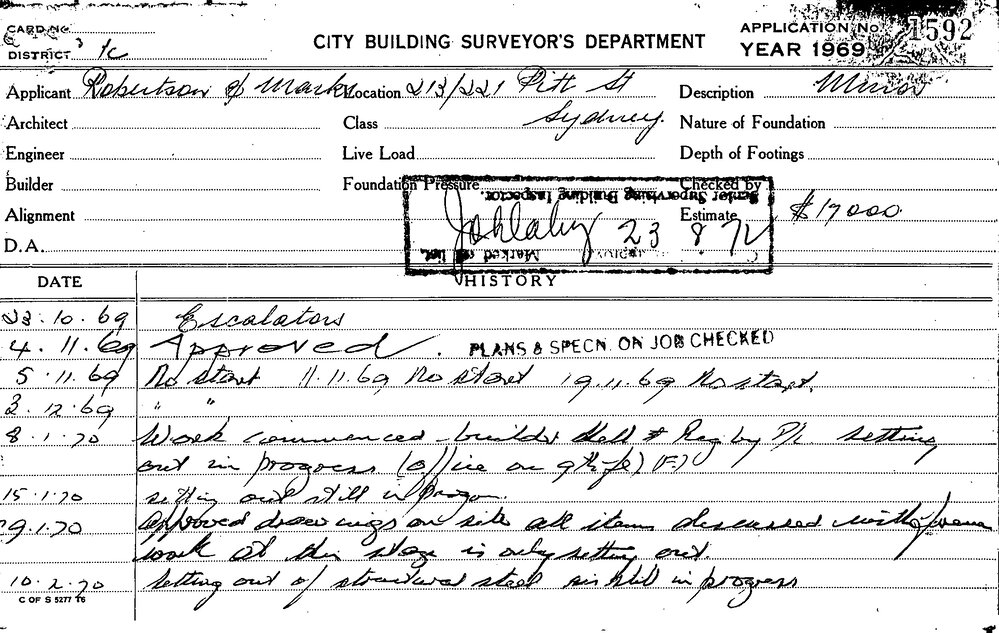 CARD No.
DISTRICT
CITY BUILDING SURVEYOR'S DEPARTMENT
APPLICATION No. 1592
YEAR 1969
Applicant Robertson & Marks Location 213/221 Pitt St Description Minor
Architect Class Sydney. Nature of Foundation
Engineer Live Load Depth of Footings
Builder Foundation Pressure Checked by
Senior Supervising Building Inspector.
Alignment Estimate $17000
23 8 72
D.A. Marked off list.
DATE HISTORY
23.10.69 Escalators
4.11.69 Approved. PLANS & SPECN. ON JOB CHECKED
5.11.69 No start 11.11.69 No start 19.11.69 No start.
3.12.69 " "
8.1.70 Work commenced - builder Kell & Rigby P/L setting
out in progress (office on 9th fl)
15.1.70 setting out still in progress.
9.1.70 approved drawings on site all items discussed with foreman
work at this stage is only setting out.
10.2.70 setting out of structural steel still in progress
C OF S 5277 T6